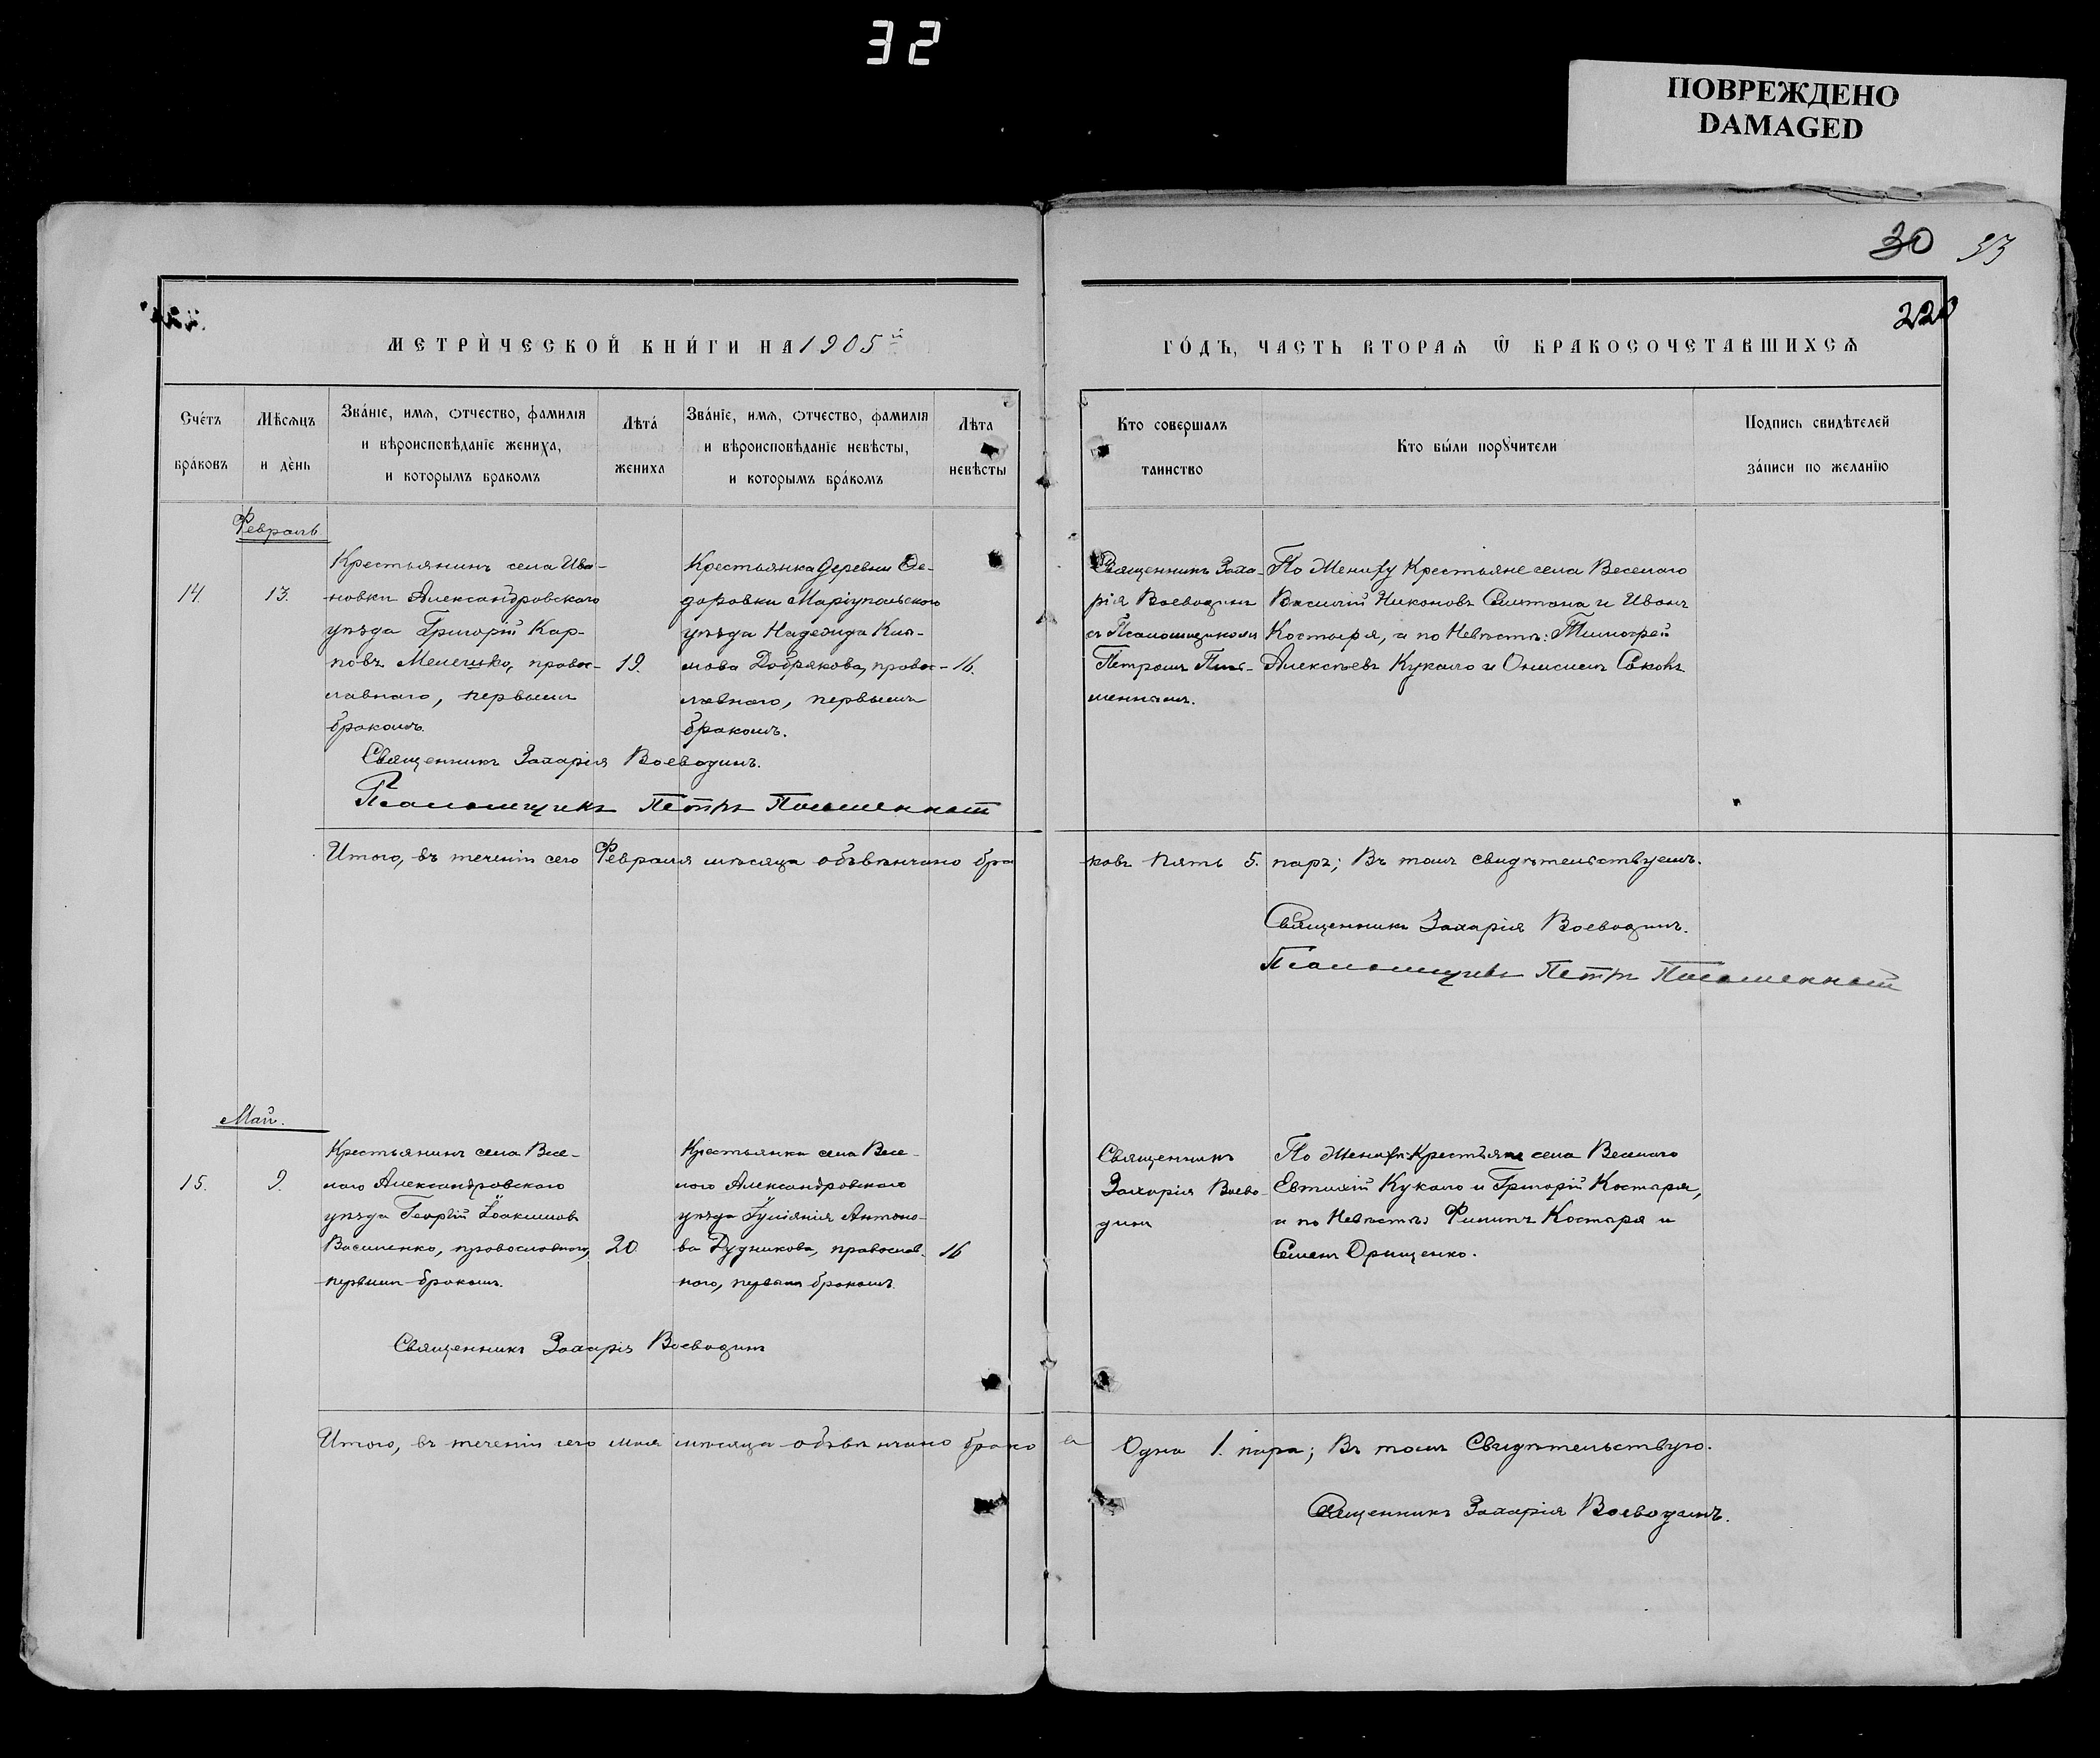 32
ПОВРЕЖДЕНО
DAMAGED
30 33
220
МЕТРИ́ЧЕСКОЙ КНИ́ГИ НА 1905й
ГО́ДЪ, ЧАСТЬ ВТОРАѦ Ѿ БРАКОСОЧЕТАВШИХСѦ
Сче́тъ
бра́ковъ
Мѣсѧцъ
и дѐнь
Зва́нїе, имѧ, ѻтчество, фамилїѧ
и вѣроисповѣданїе жениха,
и которымъ бракомъ
Лѣта́
жениха
Зва́нїе, имѧ, ѻтчество, фамилїѧ
и вѣроисповѣданїе невѣсты,
и которымъ бра́комъ
Лѣта
невѣсты
Кто совершалъ
таинство
Кто бы́ли порꙋчители
Подпись свидѣтелей
за́писи по желанїю
Февраль
14.
13.
Крестьянинъ села Ива-
новки Александровскаго
уѣзда Григорій Кар-
повъ Мелешко, правос-
лавнаго, первымъ
бракомъ.
19.
Крестьянка деревни Ѳе-
доровки Маріупольскаго
уѣзда Надежда Кли-
мова Добрякова, правос-
лавнаго, первымъ
бракомъ.
16.
Священникъ Заха-
рія Воеводинъ
съ Псаломщикомъ
Петромъ Пись-
меннымъ.
По Жениху Крестьяне села Веселаго
Василій Никоновъ Сметана и Иванъ
Костыря, а по Невѣстѣ: Тимофей
Алексѣевъ Кукало и Онисимъ Саковъ
Священникъ Захарія Воеводинъ.
Псаломщикъ Петръ Письменный
Итого, въ теченіи сего Февраля мѣсяца обвѣнчано бра
ковъ пять 5. паръ; Въ томъ свидѣтельствуемъ.
Священникъ Захарія Воеводинъ.
Псаломщикъ Петръ Письменный
Май.
15.
9.
Крестьянинъ села Весе-
лаго Александровскаго
уѣзда Георгій Іоакимовъ
Василенко, православнаго,
первымъ бракомъ.
20
Крестьянка села Весе-
лаго Александровскаго
уѣзда Іуліанія Антоно-
ва Дудникова, православ-
наго, первымъ бракомъ.
16
Священникъ
Захарія Воево-
динъ
По Жениху: Крестьяне села Веселаго
Евтихій Кукало и Григорій Костыря,
а по Невѣстѣ: Филипъ Костыря и
Семенъ Орищенко.
Священникъ Захарія Воеводинъ
Итого, въ теченіи сего мая мѣсяца обвѣнчано брако
въ Одна 1. пара; Въ томъ Свидѣтельствую.
Священникъ Захарія Воеводинъ.